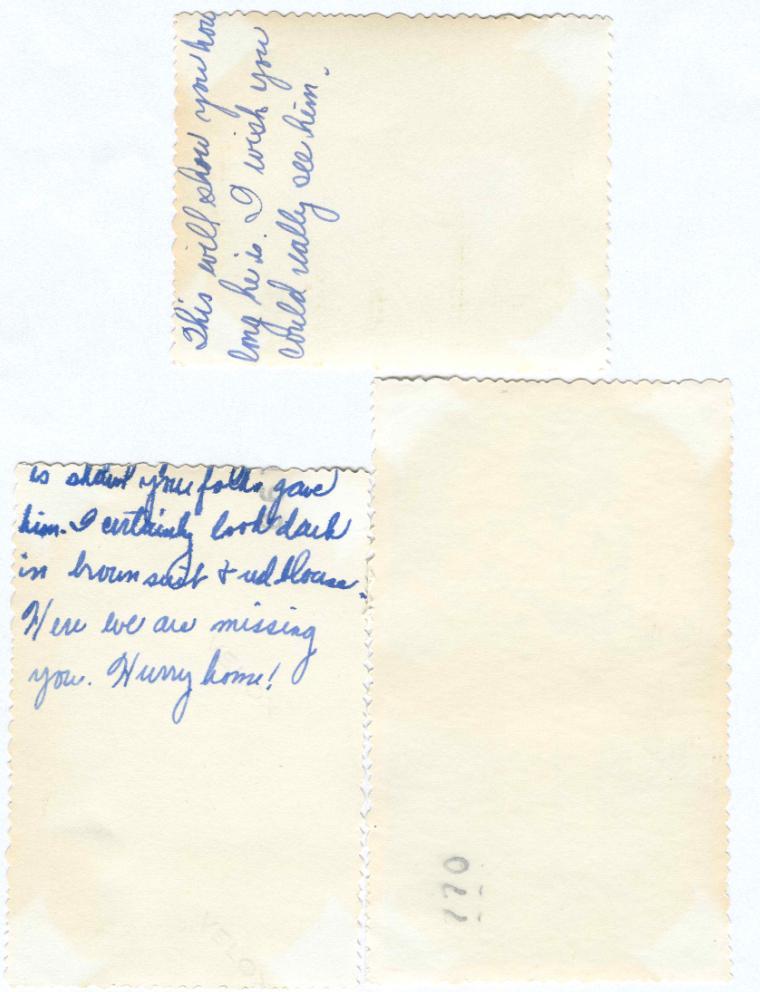 This will show you how
long he is. I wish you
could really see him.
is shawl your folks gave
him. I certainly look dark
in brown suit & red blouse.
Here we are missing
you. Hurry home!
770
VELO